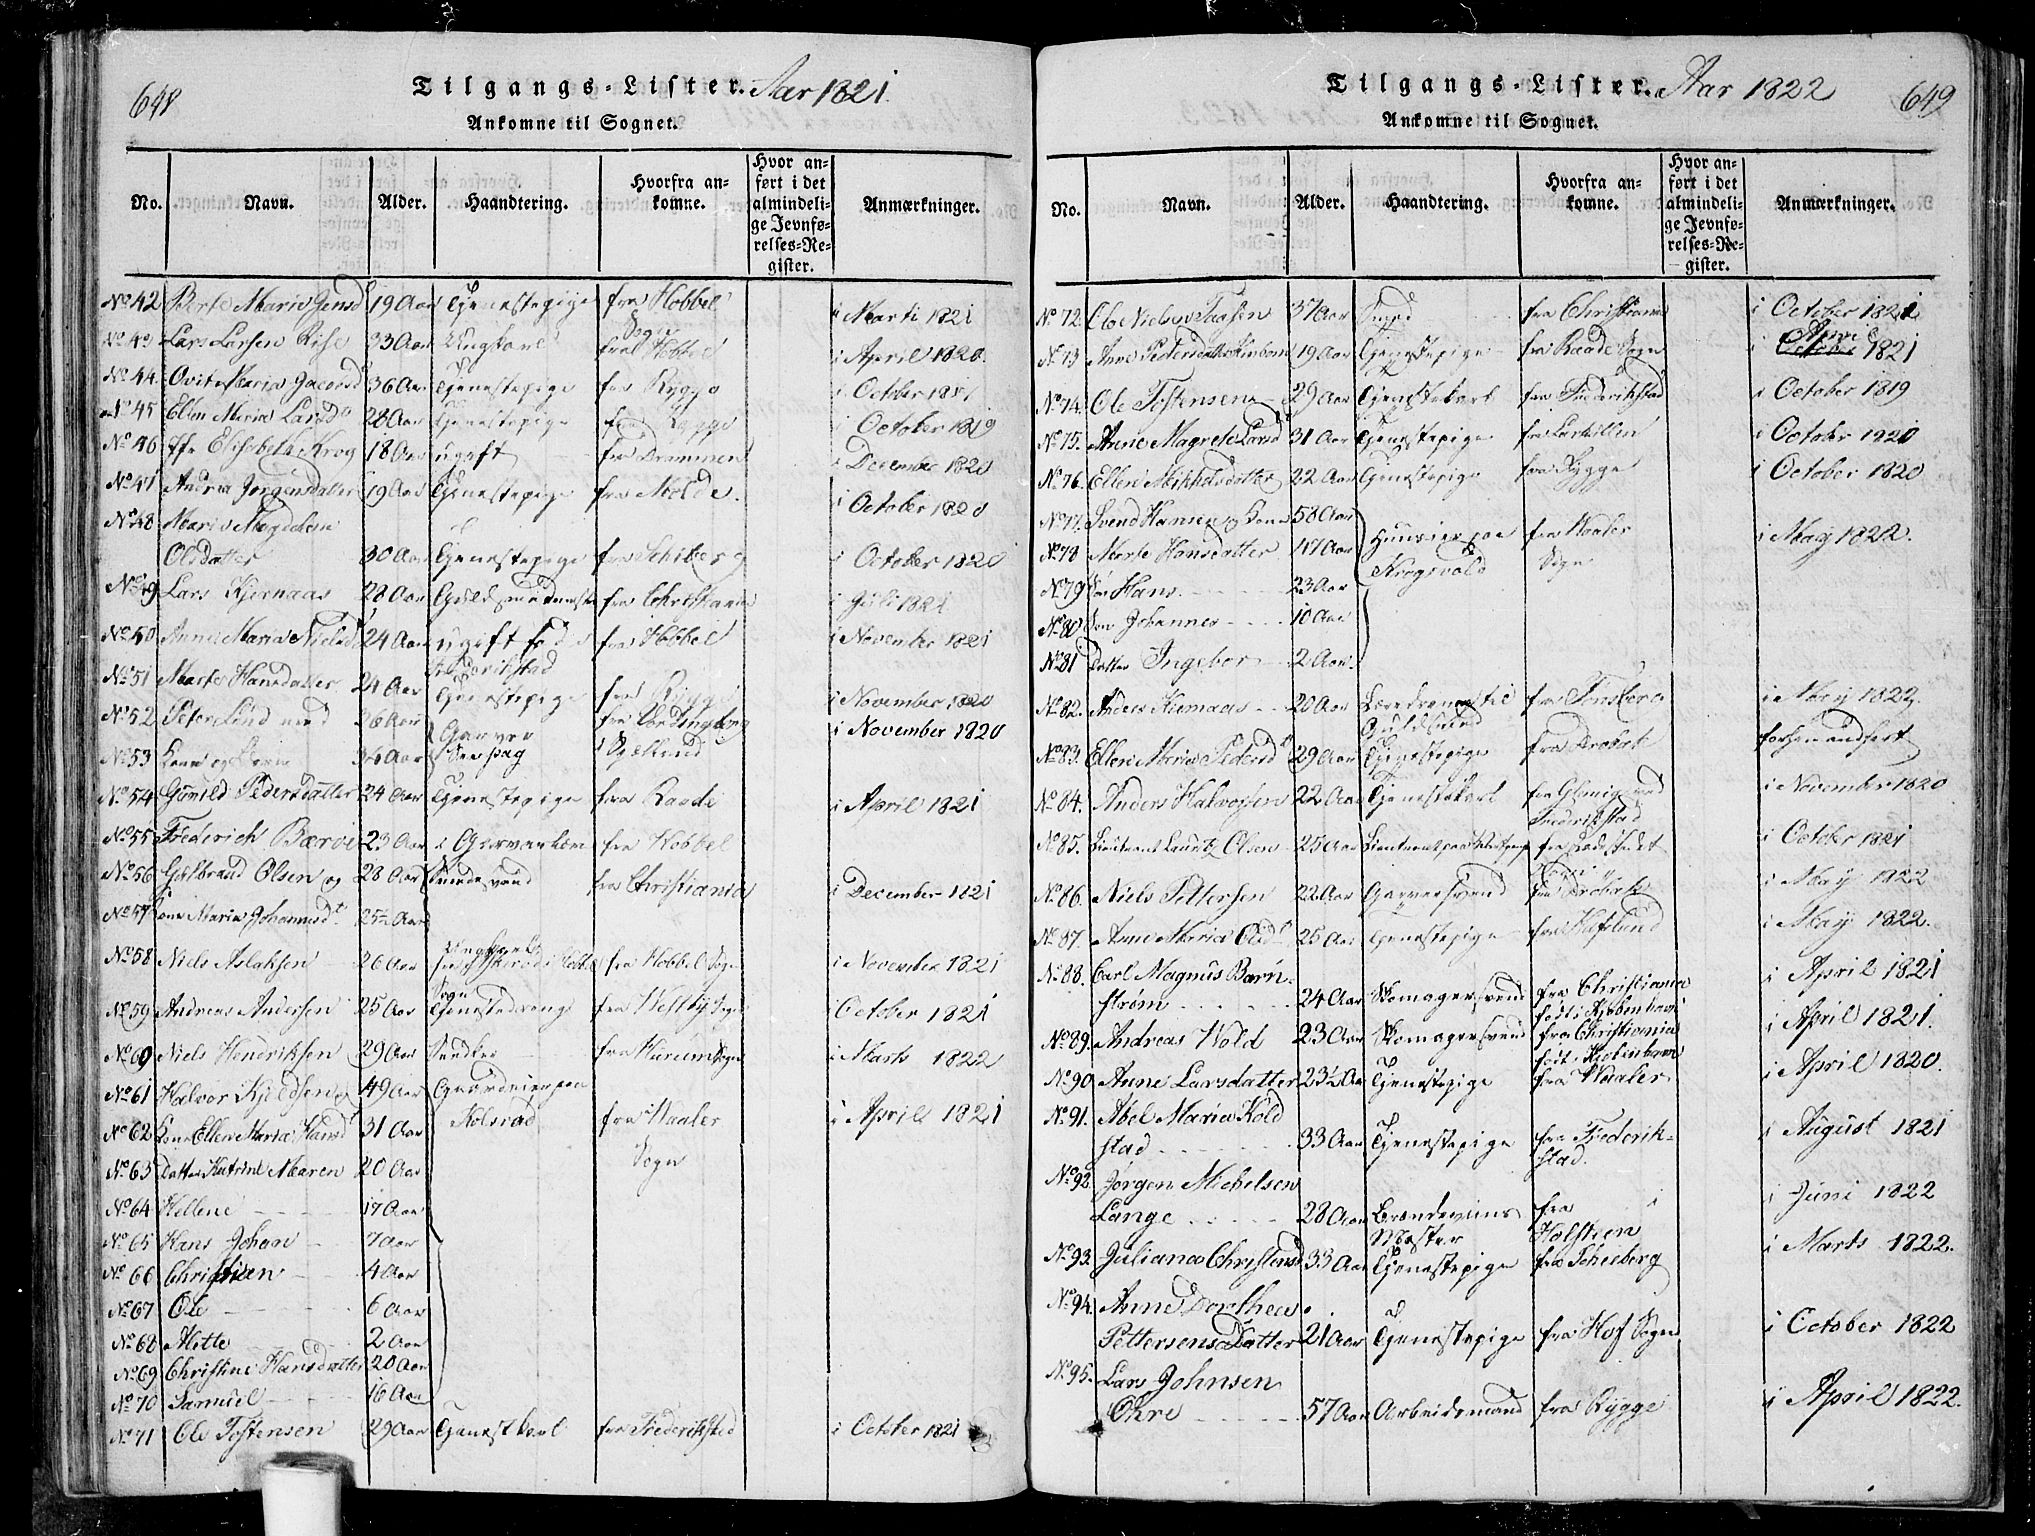 648
Tilgangs-Lister. Aar 1821.
Ankomne til Sognet.
No. Navn. Alder. Haandtering. Hvorfra ankomne. Hvor anført i det almindelige Jevnførelses-Register. Anmærkninger.
No 42 Berte Maria Jensd 19 Aar Tjenestepige fra Hobbel i Marti 1821
No 43 Lars Larsen Riise 33 Aar Ungkarl fra Hobbel Sogn i April 1820.
No 44. Maria Jacobsd 36 Aar Tjenestepige fra Rygge i October 1821
No 45 Ellen Maria Larsd 28 Aar Tjenestepige fra Rygge i October 1819
No 46 Elisabeth Krog 18 Aar ugift fra Drammen i December 1820
No 47 Andrea Jørgensdatter 19 Aar Tjenestepige fra Molde. i October 1820
No 48 Maria Magdalena
Olsdatter 30 Aar Tjenestepige fra Schiberg i October 1820
No 49 Lars Kjernaas 28 Aar Guldsmed fra Christiania i Juli 1821
No 50 Anne Maria Nielsd 24 Aar ugift fød i Fredrikstad fra Hobbel i November 1821
No 51 Marte Hansdatter 24 Aar Tjenestepige fra Rygge i November 1820
No 52 Peter Lund med 36 Aar Garver fra Vordingborg i November 1820
No 53 Kone og Børn 34 Aar Sjælland
No 54 Gunild Pedersdatter 24 Aar Tjenestepige fra Raade i April 1821
No 55 Frederich Bærøe 23 Aar i Garverlære fra Hobbel
No 56 Guldbrand Olsen og 28 Aar Smedesvend fra Christiania i December 1821
No 57 Kone Maria Johannesd. 25½ Aar
No 58 Niels Aslaksen 26 Aar Ungkarl fra Hobbel Sogn i November 1821
No 59 Andreas Andersen 25 Aar Tjenestedreng fra Westby Sogn i October 1821
No 60 Niels Hendriksen 29 Aar Snedker fra Hurum Sogn i Marts 1822
No 61 Halvor Kjeldsen og 49 Aar Gaardeier paa
No 62 Kone Ellen Maria Hansd 31 Aar Kolsrød fra Waaler i April 1821
No 63 Datter Katrine Maren 20 Aar Sogn
No 64 Hellene 17 Aar
No 65 Hans Johan 7 Aar
No 66 Christian 4 Aar
No 67 Ole 6 Aar
No 68 Mette 2 Aar
No 69 Christine Hansdatter 20 Aar
No 70 Samuel 16 Aar
No 71 Ole Tostensen 29 Aar Tjenestkarl fra Fredrikstad i October 1821
Tilgangs-Lister. Aar 1822 649
Ankomne til Sognet.
No. Navn. Alder. Haandtering. Hvorfra ankomne. Hvor anført i det almindelige Jevnførelses-Register. Anmærkninger.
No 72. Ole Nielsen 37 Aar Smed fra Christiania i October 1821
No 73 Anne Pedersdatter 19 Aar Tjenestepige fra Raade Sogn i October April 1821
No 74. Ole Tostensen 29 Aar Tjenestekarl fra Frederikstad i October 1819
No 75. Anne Magrete Larsd 31 Aar Tjenestepige fra Larkullen i October 1920
No 76. Ellen Mikkelsdatter 22 Aar Tjenestepige fra Rygge i October 1820
No 77. Svend Hansen og Kone 58 Aar
No 78 Marte Hansdatter 47 Aar Huusmand paa fra Waaler i May 1822.
No 79 Søn Hans 23 Aar Krogsvold Sogn
No 80 Søn Johannes 10 Aar
No 81 Datter Ingebor 2 Aar
No 82. Anders Kiernaas 20 Aar Læredreng til Guldsmed fra Tønsberg i May 1822.
No 83. Ellen Maria Pedersd 29 Aar Tjenestepige fra Drøbak forhen anført
No 84. Anders Halvorsen 22 Aar Tjenestekarl fra Glemig ved Fredrikstad i November 1820
No 85. Lieutenant Olsen 25 Aar Lieutenant i October 1821
No 86. Niels Pettersen 22 Aar Garversvend fra Drøbak i May 1922
No 87. Anne Maria Olsd 25 Aar Tjenestepige fra Hafslund i May 1822.
No 88. Carl Magnus Barn-
strøm 24 Aar Skomagersvend fra Christiania født i Kjøbenhavn i April 1821
No 89. Andreas Wold 23 Aar Skomagersvend fra Christiania født i Kjøbenhavn i April 1821.
No 90 Anne Larsdatter 23½ Aar Tjenestepige fra Waaler i April 1820.
No 91. Abel Maria Kold
stad 33 Aar Tjenestepige fra Frederik-
stad. i August 1821
No 92. Jørgen Michelsen
Lange 28 Aar Brændeviins Mester fra Holstien i Juni 1822
No 93. Juliana Christensd 33 Aar Tjenestepige fra Scheeberg i Marts 1822.
No 94. Anne Dorthea
Pettersens Datter 21 Aar Tjenestepige fra Hof Sogn i October 1822
No 95. Lars Johnsen
Ekre 57 Aar Arbeidsmand fra Rygge i April 1822.